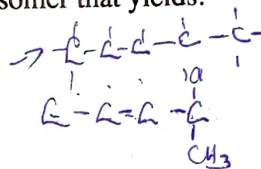 somer that yields:
C-C-C-C-C-
C-C=C-C
CH3